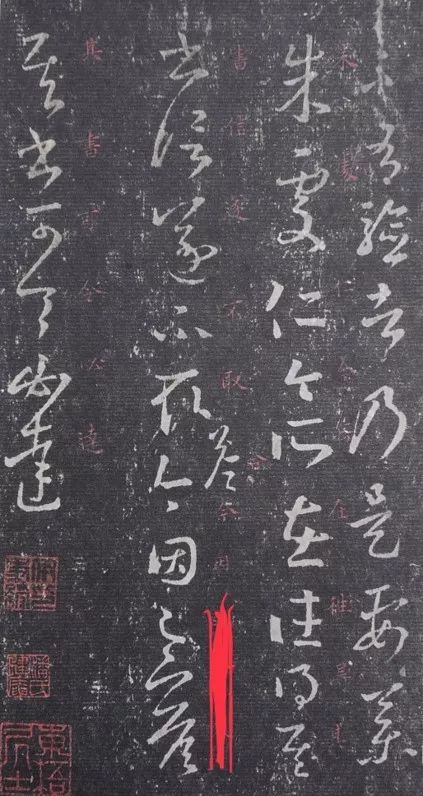 不有驗者乃是要藥
朱處仁今所在往得其
書信遂不取答今因足下答
其書可令必達